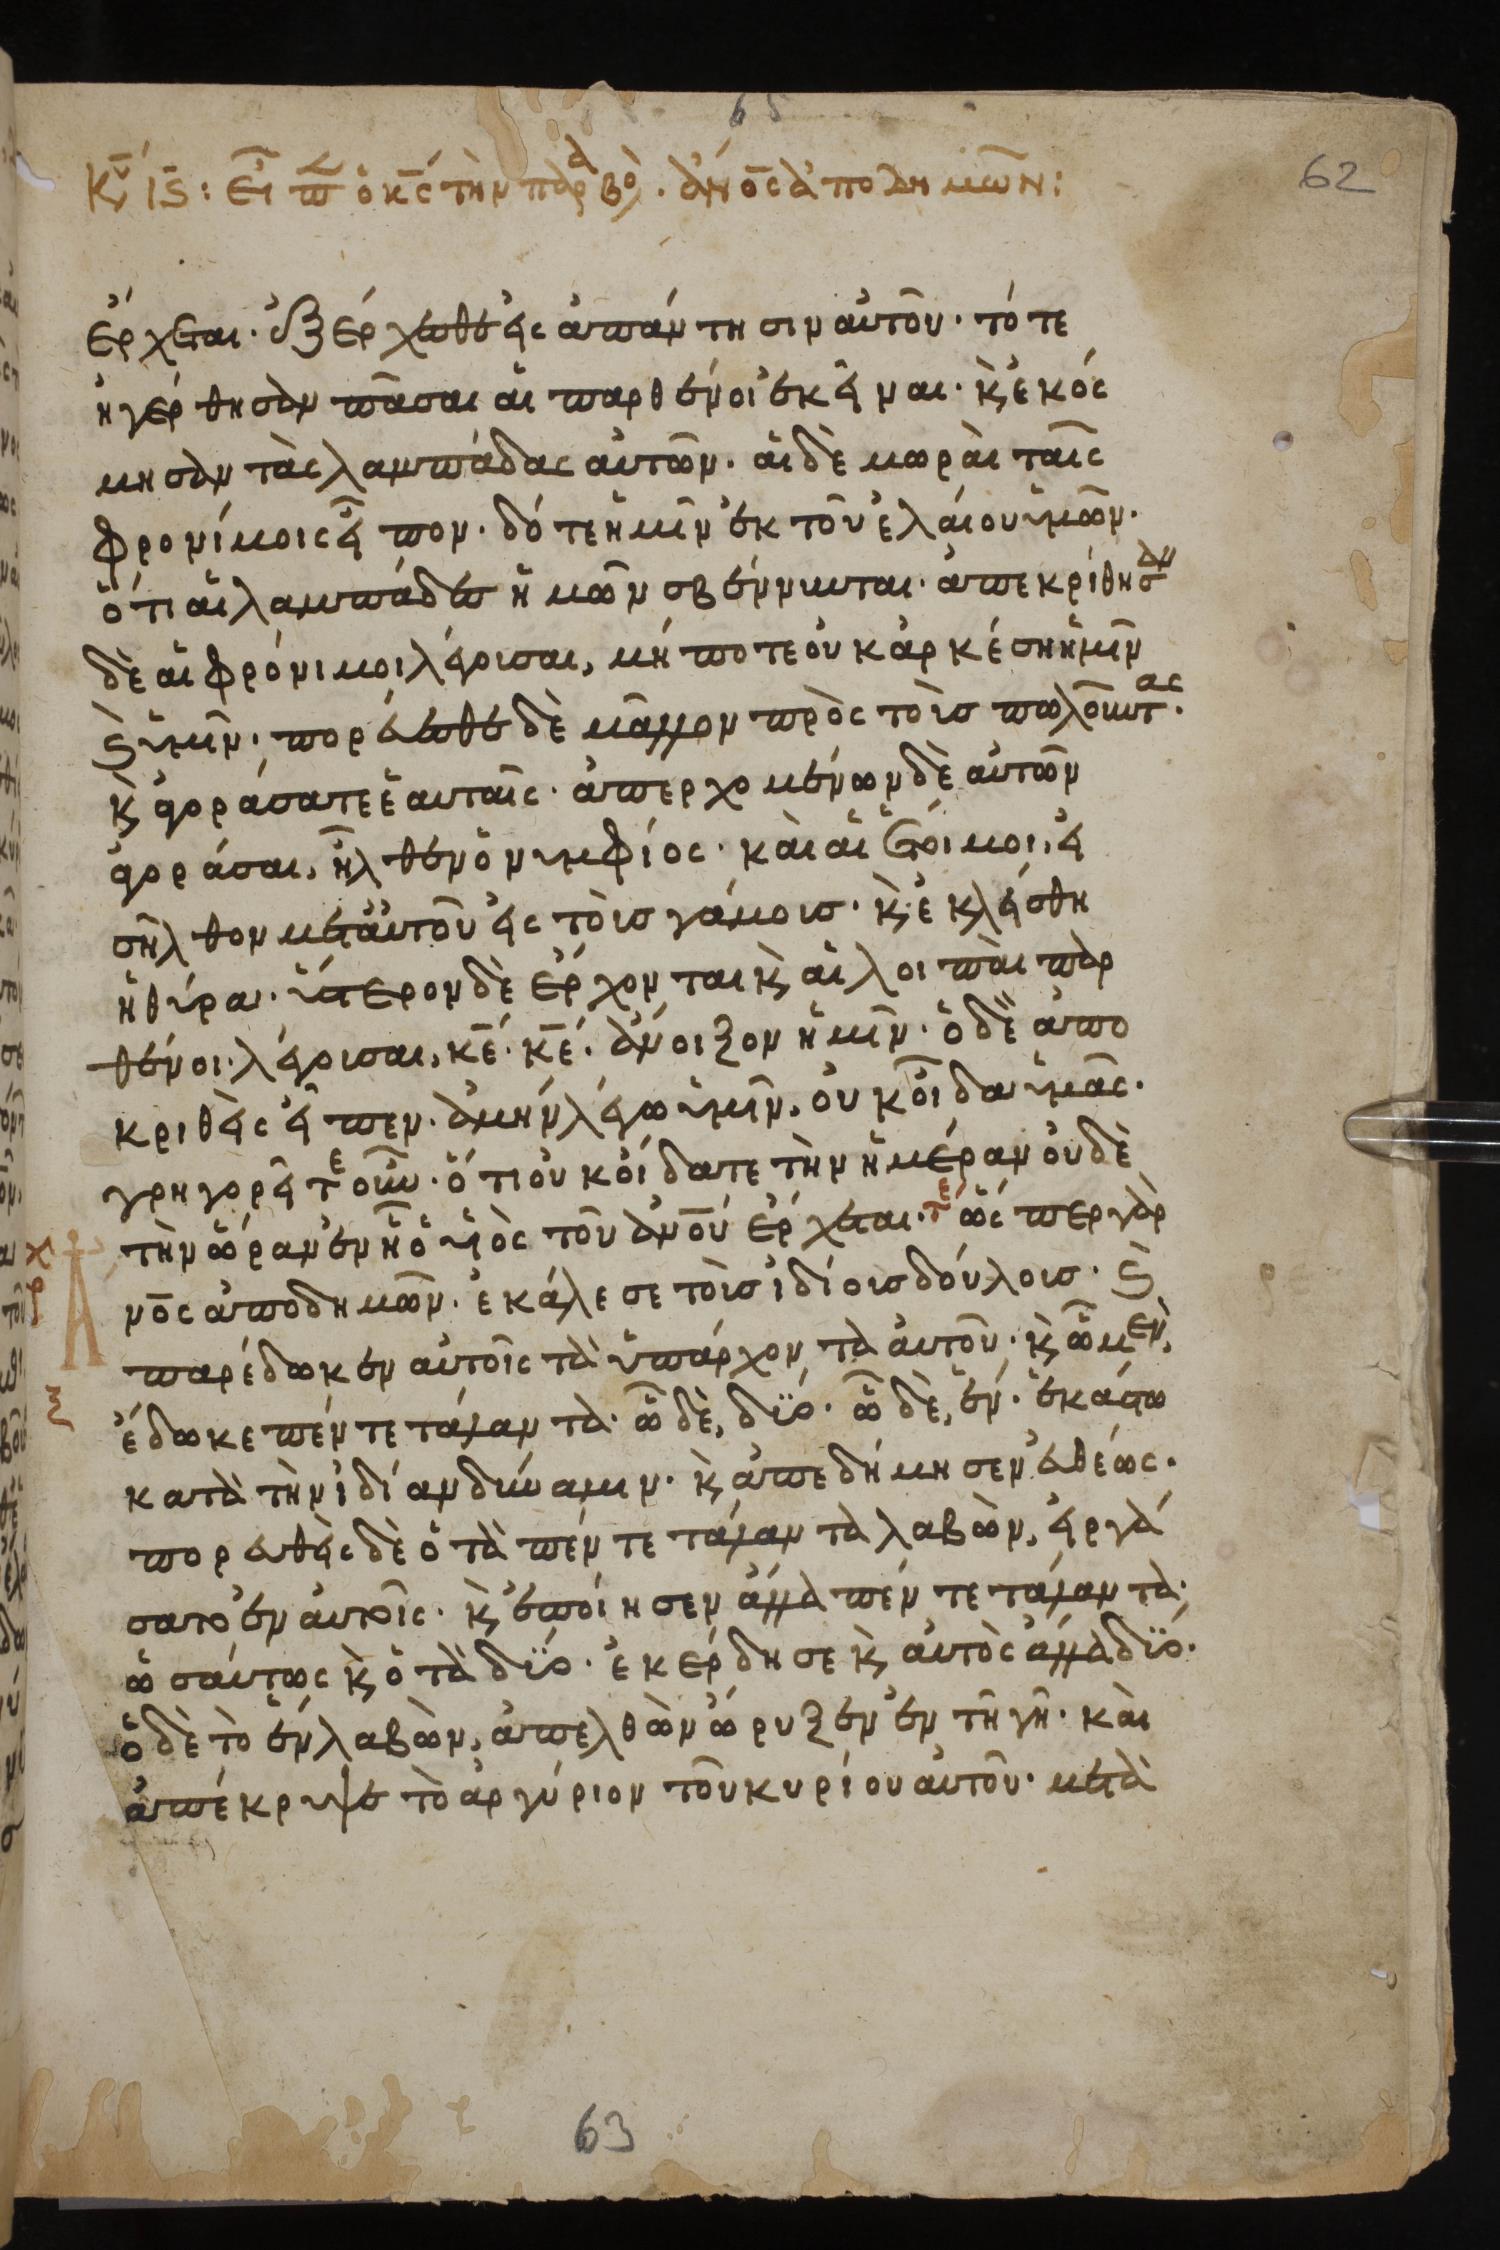 65
62
Κυ ιϛ: Εἶπεν ὁ κ̅ς τὴν παραβο. ἄν̅ο̅ς ἀποδημῶν:
ἔρχεται. ἐξέρχεσθε εἰς ἀπάντησιν αὐτοῦ. τότε
ἠγέρθησαν πᾶσαι αἱ παρθένοι ἐκεῖναι. κ ἐκόσ
μησαν τὰς λαμπάδας αὐτῶν. αἱ δὲ μωραὶ ταῖς
φρονίμοις εἶπον. δότε ἡμῖν ἐκ τοῦ ἐλαίου ὑμῶν.
ὅτι αἱ λαμπάδες ἡμῶν σβέννυνται. ἀπεκρίθησαν
δὲ αἱ φρόνιμοι λέγουσαι, μήποτε οὐκ ἀρκέσῃ ἡμῖν
ϗ ὑμῖν. πορεύεσθε δὲ μᾶλλον πρὸς τοὺσ πωλοῦντας.
κ ἀγοράσατε ἑαυταῖς. ἀπερχομένων δὲ αὐτῶν
ἀγοράσαι, ἦλθεν ὁ νυμφίος. καὶ αἱ ἕτοιμοι, εἰ
σῆλθον μετ αὐτοῦ εἰς τοὺσ γάμουσ. κ ἐκλείσθη
ἡ θύρα. ὕστερον δὲ ἔρχονται κ αἱ λοιπαὶ παρ
θένοι. λέγουσαι, κ̅ε̅. κ̅ε̅. ἄνοιξον ἡμῖν. ὁ δὲ ἀπο
κριθεὶς εἶπεν. ἀμὴν λέγω ὑμῖν, οὐκ οἶδα ὑμᾶς.
γρηγορεῖτε οὖν. ὅτι οὐκ οἴδατε τὴν ἡμέραν οὐδὲ
τὴν ὥραν ἐν ᾗ ὁ υἱὸς τοῦ ἀν̅ο̅υ ἔρχεται. τε ὥσπερ γὰρ
ἄν̅ο̅ς ἀποδημῶν. ἐκάλεσε τοὺσ ἰδίουσ δούλουσ. ϗ
παρέδωκεν αὐτοῖς τὰ ὑπάρχοντα αὐτοῦ. κ ᾧ μὲν,
ἔδωκε πέντε τάλαντα. ᾧ δὲ, δύο. ᾧ δὲ, ἕν. ἑκάστω
κατὰ τὴν ἰδίαν δύναμιν. κ ἀπεδήμησεν εὐθέως.
πορευθεὶς δὲ ὁ τὰ πέντε τάλαντα λαβὼν, εἰργά
σατο ἐν αὐτοῖς. κ ἐποίησεν ἄλλα πέντε τάλαντα.
ὡσαύτως κ ὁ τὰ δύο. ἐκέρδησε κ αὐτὸς ἄλλα δύο.
ὁ δὲ τὸ ἓν λαβὼν, ἀπελθὼν ὤρυξεν ἐν τῇ γῇ. καὶ
ἀπέκρυψε τὸ ἀργύριον τοῦ κυρίου αὐτοῦ. μετὰ
63